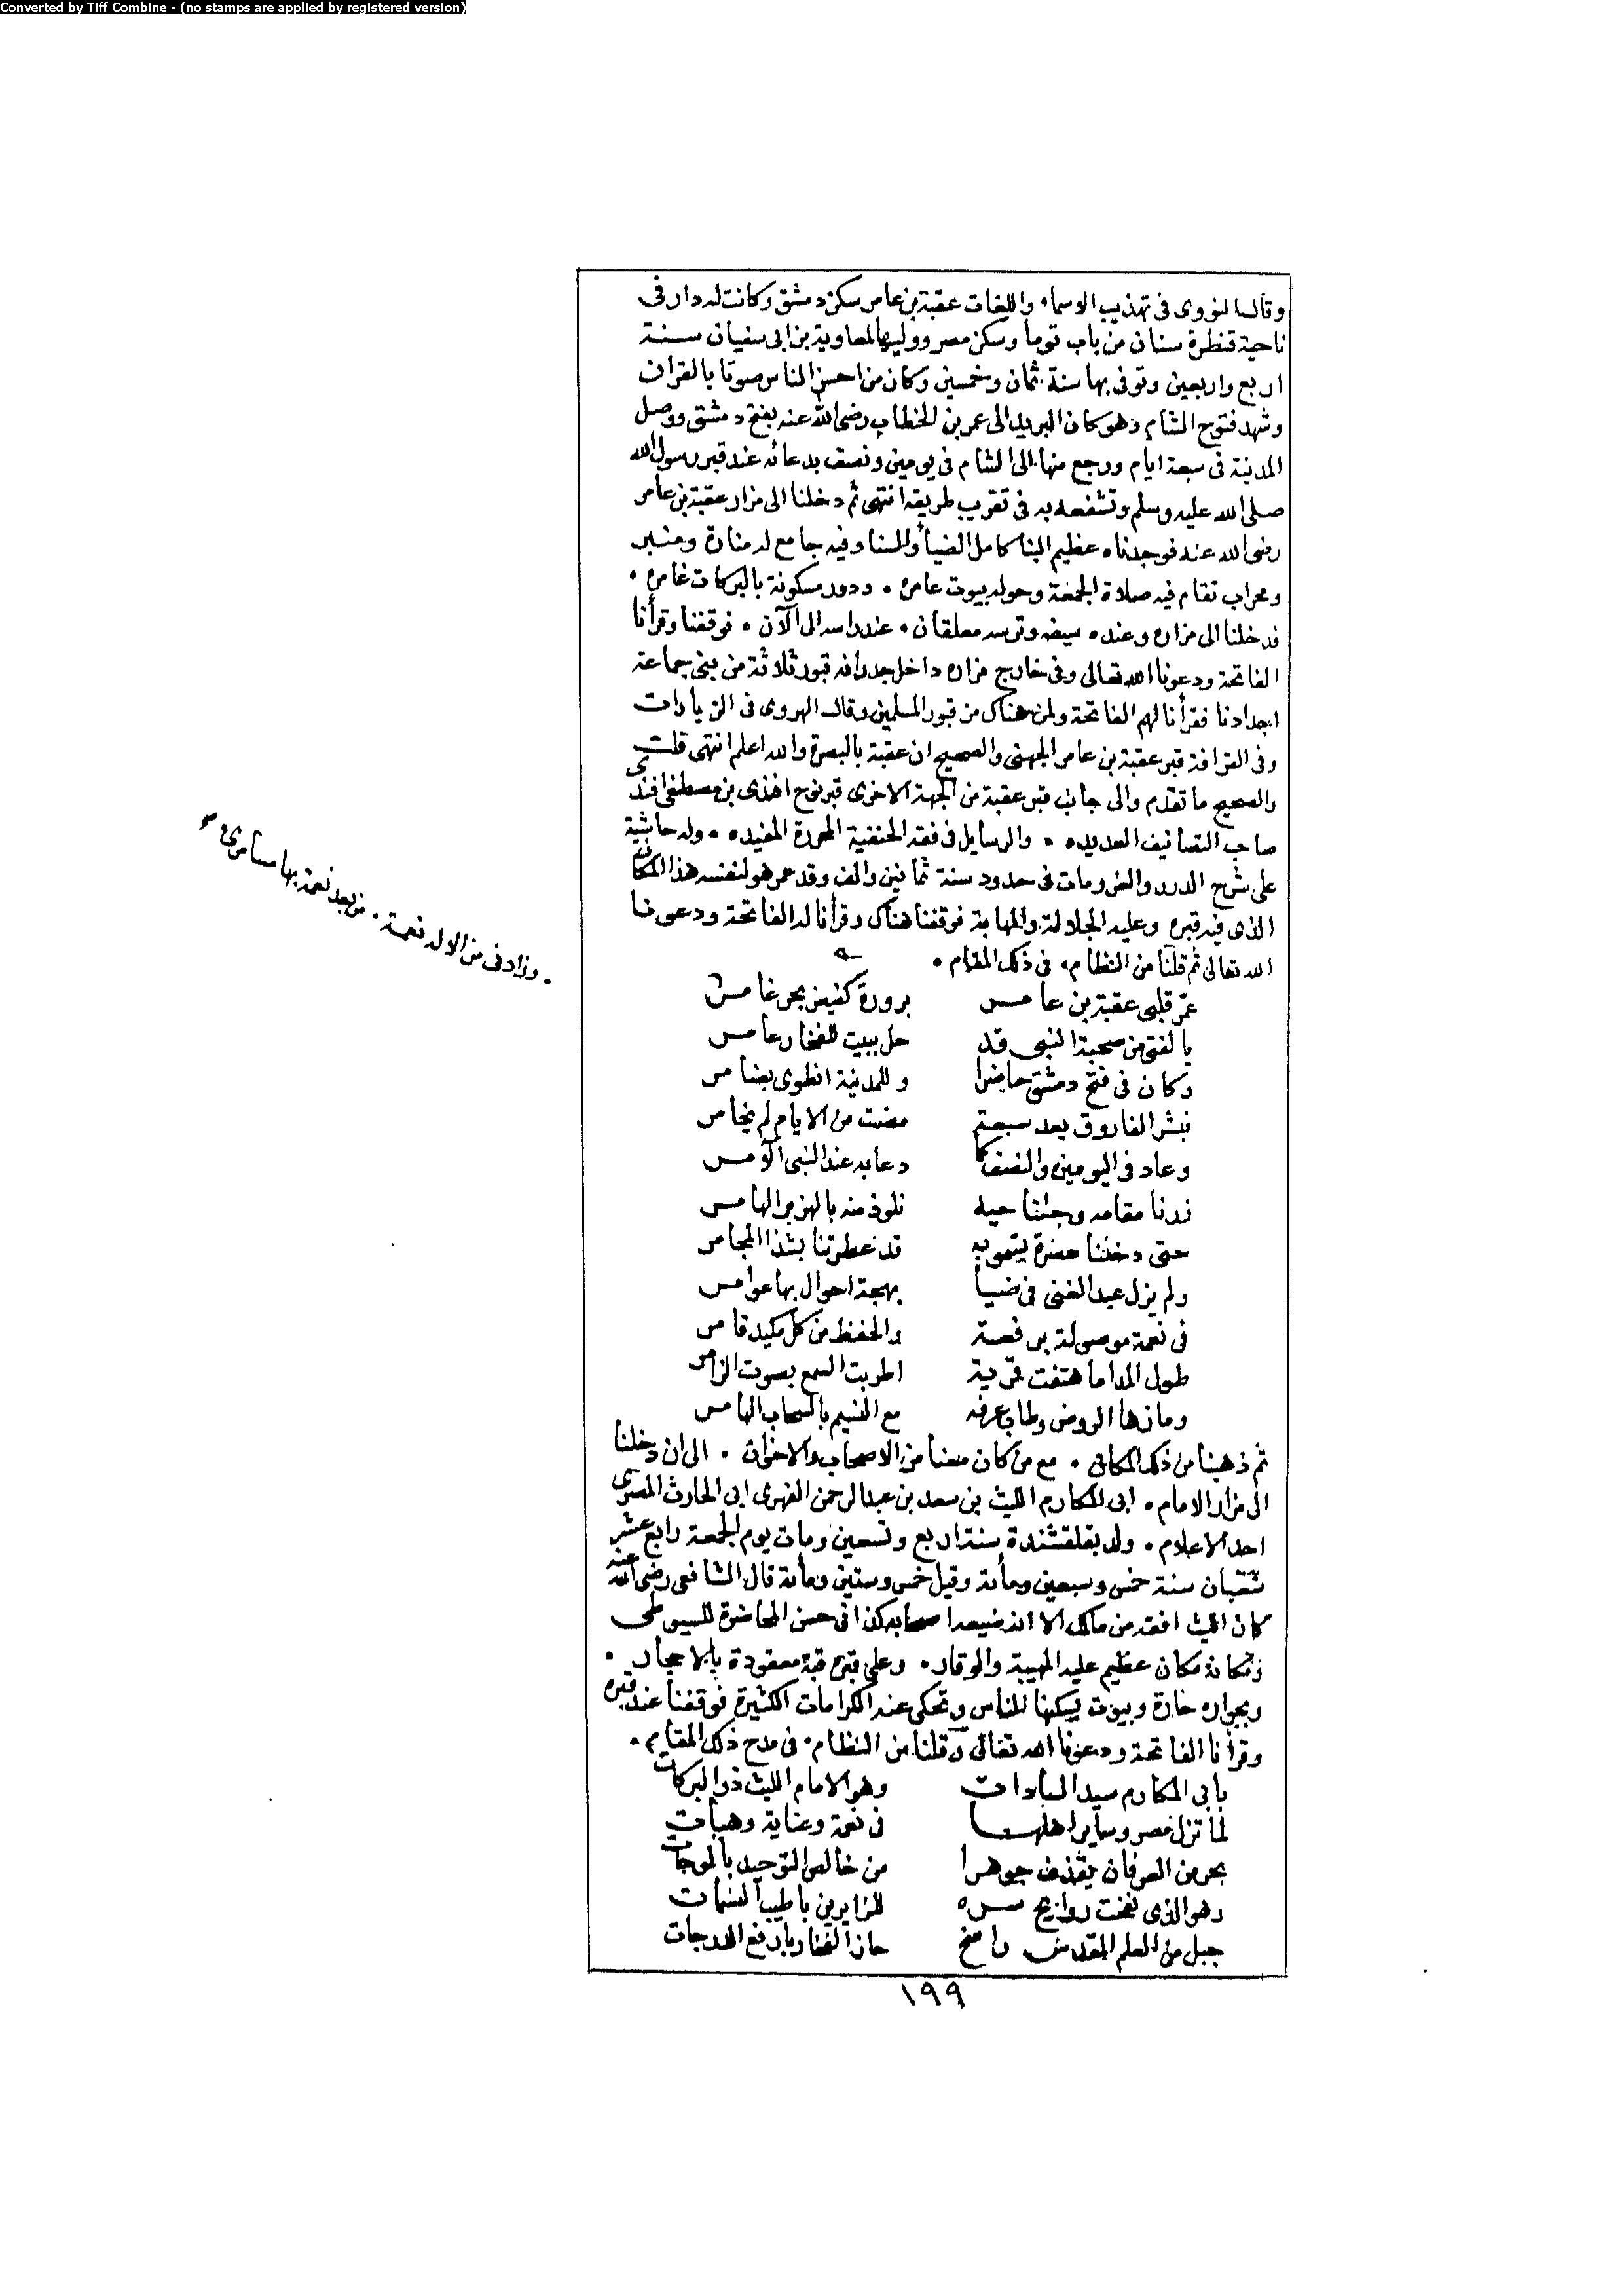 Converted by Tiff Combine - (no stamps are applied by registered version)
وقال النووى فى تهذيب الاسماء واللغات عقبة بن عامر سكن دمشق وكانت له دار فى
ناحية قنطرة سنان من باب توما وسكن مصر ووليها لمعاوية بن ابى سفيان سنة
اربع واربعين وتوفى بها سنة ثمان وخمسين وكان من احسن الناس صوتا بالقران
وشهد فتوح الشام وهو كان البريد الى عمر بن الخطاب رضى الله عنه بفتح دمشق ووصل
المدينة فى سبعة ايام ورجع منها الى الشام فى يومين ونصف بدعائه عند قبر رسول الله
صلى الله عليه وسلم وتشفعه به فى تقريب طريقه انتهى ثم دخلنا الى مزار عقبة بن عامر
رضى الله عنه فوجدناه عظيم البنا كامل الضيأ والسنا وفيه جامع له منارة ومنبر
ومحراب تقام فيه صلاة الجمعة وحوله بيوت عامره . ودور مسكونة بالبركات غامره .
فدخلنا الى مزاره وعنده سيفه وترسه معلقان . عند راسه الى الآن . فوقفنا وقرأنا
الفاتحة ودعونا الله تعالى وفى خارج مزاره داخل جدرانه قبور ثلاثة من بنى جماعة
اجدادنا فقرأنا لهم الفاتحة ولمن هناك من قبور المسلمين وقال الهروى فى الزيارات
وفى القرافة قبر عقبة بن عامر الجهنى والصحيح ان عقبة بالبصرة والله اعلم انتهى قلت
والصحيح ما تقدم والى جانب قبر عقبة من الجهة الاخرى قبر نوح افندى بن مصطفى افندى
صاحب التصانيف العديده . والرسايل فى فقه الحنفية المحررة المفيده . وله حاشية
على شرح الدرر والغرر ومات فى حدود سنة ثمانين والف وقد عمر هو لنفسه هذا المكان
الذى فيه قبره وعليه الجلالة والمهابة فوقفنا هناك وقرأنا له الفاتحة ودعونا
الله تعالى ثم قلنا من النظام . فى ذلك المقام .
عمّر قلبى عقبة بن عامر بزورة كفيض بحر غامر
يا لفتى من صحبة النبى قد حل ببيت للفخار عامر
وكان فى فتح دمشق حاضرا وللمدينة انطوى بضامر
فبشر الفاروق بعد سبعة مضت من الايام لم يخامر
وعاد فى اليومين والنصف كما دعا به عند النبى الآمر
زرنا مقامه وجئنا حيه نلوذ منه بالهزبر الهامر
حتى دخلنا حضرة يسمو به قد عطرتنا بشذا المجامر
ولم يزل عبد الغنى فى ضيا بهجة احوال بها عوامر
فى نعمة موصولة برفعة والحفظ من كل مكيد قامر
طول المدا ما هتفت قمرية اطربت السمع بصوت الزامر
وما زها الروض وطاب عرفه مع النسيم بالسحاب الهامر
ثم ذهبنا من ذلك المكان . مع من كان معنا من الاصحاب والاخوان . الى ان دخلنا
الى مزار الامام . ابى المكارم الليث بن سعد بن عبد الرحمن الفهمى ابى الحارث المصرى
احد الاعلام . ولد بقلقشندة سنة اربع وتسعين ومات يوم الجمعة رابع عشر
شعبان سنة خمس وسبعين ومأة وقيل خمس وستين ومأة قال الشافعى رضى الله عنه
كان الليث افقه من مالك الا انه ضيعه اصحابه كذا فى حسن المحاضرة للسيوطى
ومكانه مكان عظيم عليه الهيبة والوقار . وعلى قبره قبة معقودة بالاحجار .
وبجواره حارة وبيوت يسكنها للناس وتحكى عنه الكرامات الكثيرة فوقفنا عند قبره
وقرأنا الفاتحة ودعونا الله تعالى وقلنا من النظام . فى مدح ذلك المقام .
بابى المكارم سيد السادات وهو الامام الليث ذو البركات
لما تزل مصر وساير اهلها فى نعمة وعناية وهبات
بحر من العرفان يقذف جوهرا من خالص التوحيد بالموجات
وهو الذى نفحت روايح سره للزايرين باطيب النسمات
جبل من العلم المقدس راسخ حاز الفخار بارفع الدرجات
١٩٩
. وزادنى من الاله نعمة . من بعد نعمة بها مسامرى